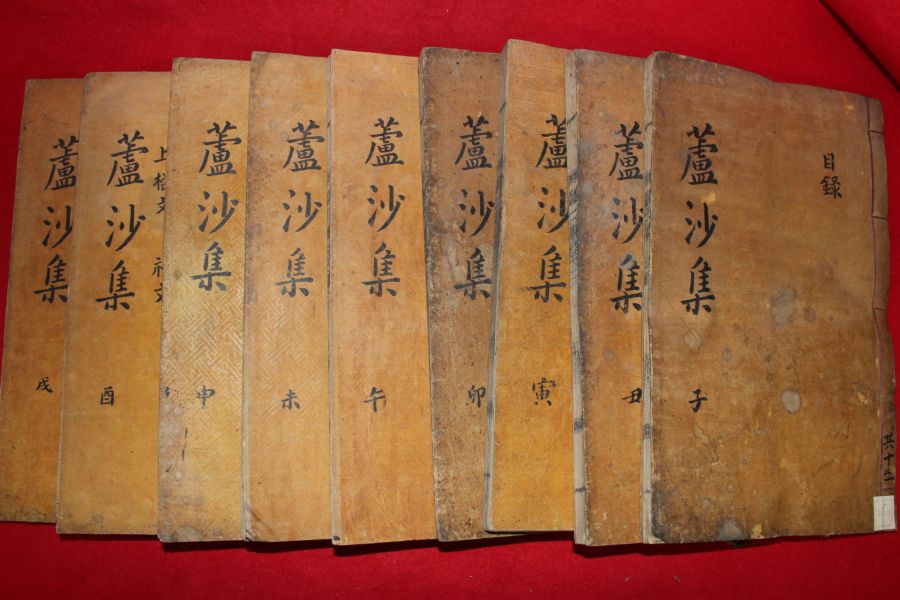 目錄
蘆沙集
子
共十二
蘆沙集
丑
蘆沙集
寅
蘆沙集
卯
蘆沙集
午
蘆沙集
未
蘆沙集
申
上樑文 祝文
蘆沙集
酉
蘆沙集
戌